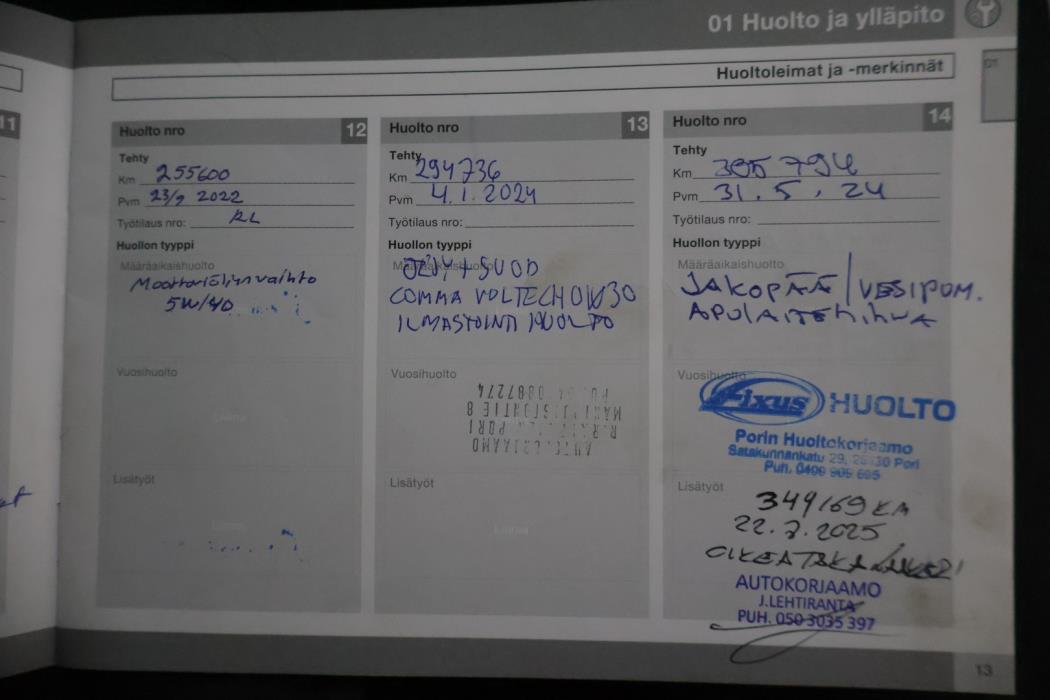 01 Huolto ja ylläpito
01
Huoltoleimat ja -merkinnät
11
Huolto nro 12
Tehty
Km 255600
Pvm 23/9 2022
Työtilaus nro: RL
Huollon tyyppi
Määräaikaishuolto
Moottoriöljynvaihto
5W/40
Vuosihuolto
Lisätyöt
Huolto nro 13
Tehty
Km 294736
Pvm 4.1.2024
Työtilaus nro:
Huollon tyyppi
Määräaikaishuolto
ÖLJY + SUOD
COMMA VOLTECH 0W30
ILMASTOINTI HUOLTO
Vuosihuolto
AUTOKORJAAMO
PORI
8
0887274
Lisätyöt
Huolto nro 14
Tehty
Km 305 794
Pvm 31.5.24
Työtilaus nro:
Huollon tyyppi
Määräaikaishuolto
JAKOPÄÄ / VESIPUM.
APULAITEHIHNA
Vuosihuolto
Fixus HUOLTO
Porin Huoltokorjaamo
Satakunnankatu 29, Pori
Puh. 0400 905 695
Lisätyöt
349169 KM
22.7.2025
OIKEA TAKA
AUTOKORJAAMO
J.LEHTIRANTA
PUH. 050 3035 397
13